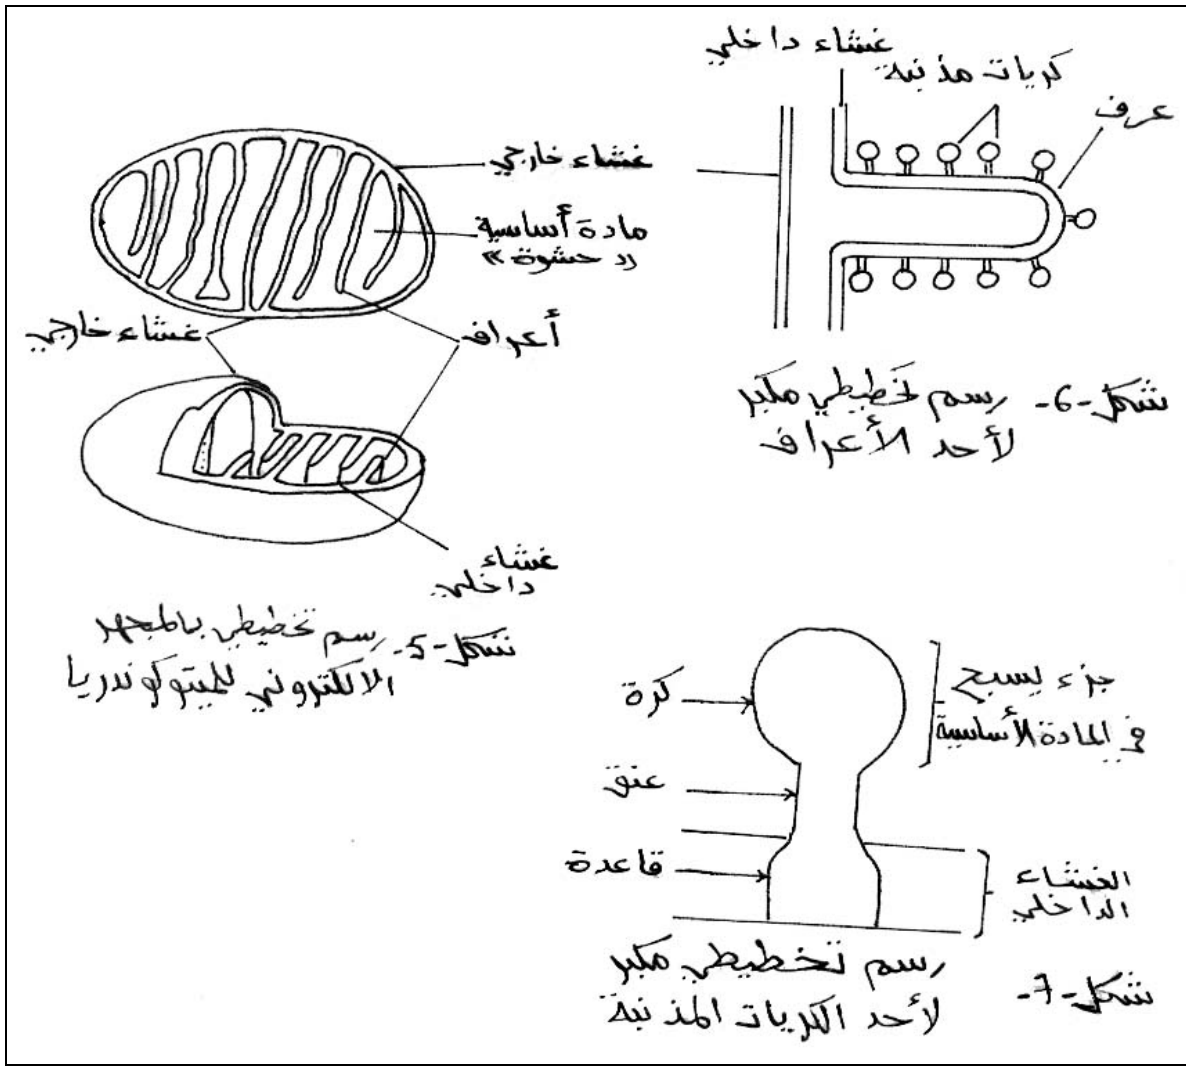 غشاء داخلي
كريات مذنبة
عرف
غشاء خارجي
مادة أساسية
« حشوة »
غشاء خارجي
أعراف
شكل -6- رسم تخطيطي مكبر
لأحد الأعراف
غشاء
داخلي
شكل -5- رسم تخطيطي بالمجهر
الالكتروني للميتوكوندريا
كرة
جزء يسبح
في المادة الأساسية
عنق
قاعدة
الغشاء
الداخلي
شكل -7- رسم تخطيطي مكبر
لأحد الكريات المذنبة